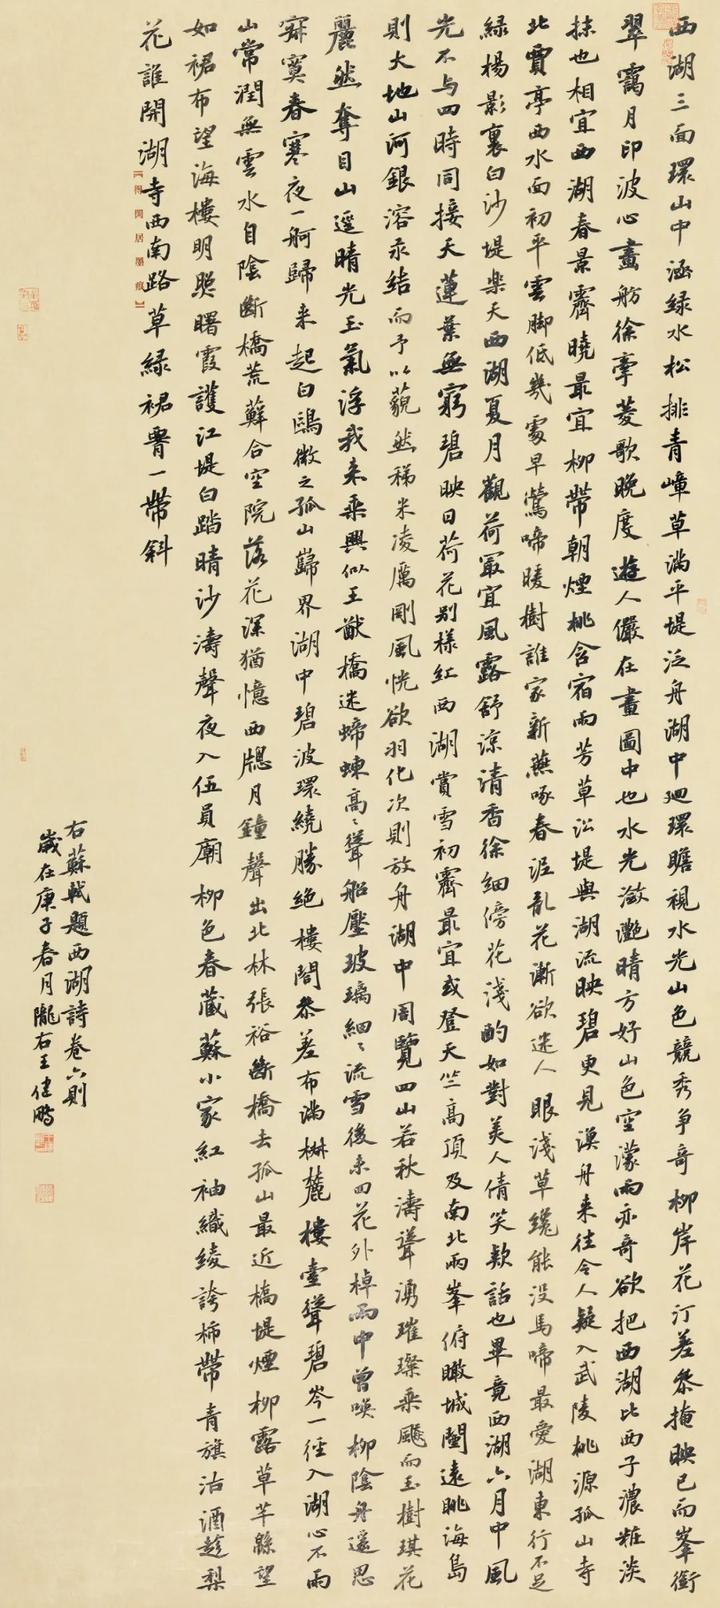 西湖三面環山中涵綠水松排青嶂草滿平堤泛舟湖中迴環瞻視水光山色競秀爭奇柳岸花汀差參掩映已而峯銜
翠靄月印波心畫舫徐牽菱歌晚度遊人儼在畫圖中也水光瀲灩晴方好山色空濛雨亦奇欲把西湖比西子濃粧淡
抹也相宜西湖春景霽曉最宜柳帶朝煙桃含宿雨芳草沿堤與湖流映碧更見漁舟来往令人疑入武陵桃源孤山寺
北賈亭西水面初平雲脚低幾處早鶯啼暖樹誰家新燕啄春泥亂花漸欲迷人眼淺草纔能没馬啼最愛湖東行不足
綠楊影裏白沙堤樂天西湖夏月觀荷冣宜風露舒涼清香徐細傍花淺酌如對美人倩笑欵話也畢竟西湖六月中風
光不与四時同接天蓮葉無窮碧映日荷花别樣紅西湖賞雪初霽最宜或登天竺高頂及南北兩峯俯瞰城闉遠眺海島
則大地山河銀溶汞結而予以藐然稊米凌厲剛風恍欲羽化次則放舟湖中周覽四山若秋濤聳湧璀璨乘飈而玉樹琪花
麗然奪目山遥晴光玉氣浮我来乘興似王猷橋迷螮蝀高〻聳船壓玻璃細〻流雪後未四花外棹雨中曾喚柳陰舟還思
寂寞春寒夜一舸歸来起白鷗徵之孤山巋界湖中碧波環繞勝绝樓閣參差布滿椒麓樓臺聳碧岑一徑入湖心不雨
山常潤無雲水自陰斷橋荒蘚合空院落花深猶憶西牕月鐘聲出北林張祜斷橋去孤山最近橋堤煙柳露草芊緜望
如裙布望海樓明照曙霞護江堤白踏晴沙濤聲夜入伍員廟柳色春藏蘇小家紅袖織綾誇柿帶青旗沽酒趁梨
花誰開湖寺西南路草綠裙腎一帶斜
右蘇軾題西湖詩卷六則
歲在庚子春月隴右王健鵬